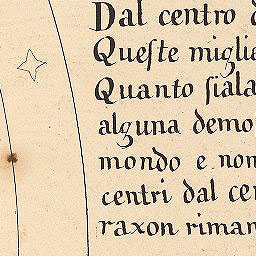 Dal centro
Queſte miglia
Quanto ſiala
alguna demo
mondo e non
centri dal cen
raxon riman